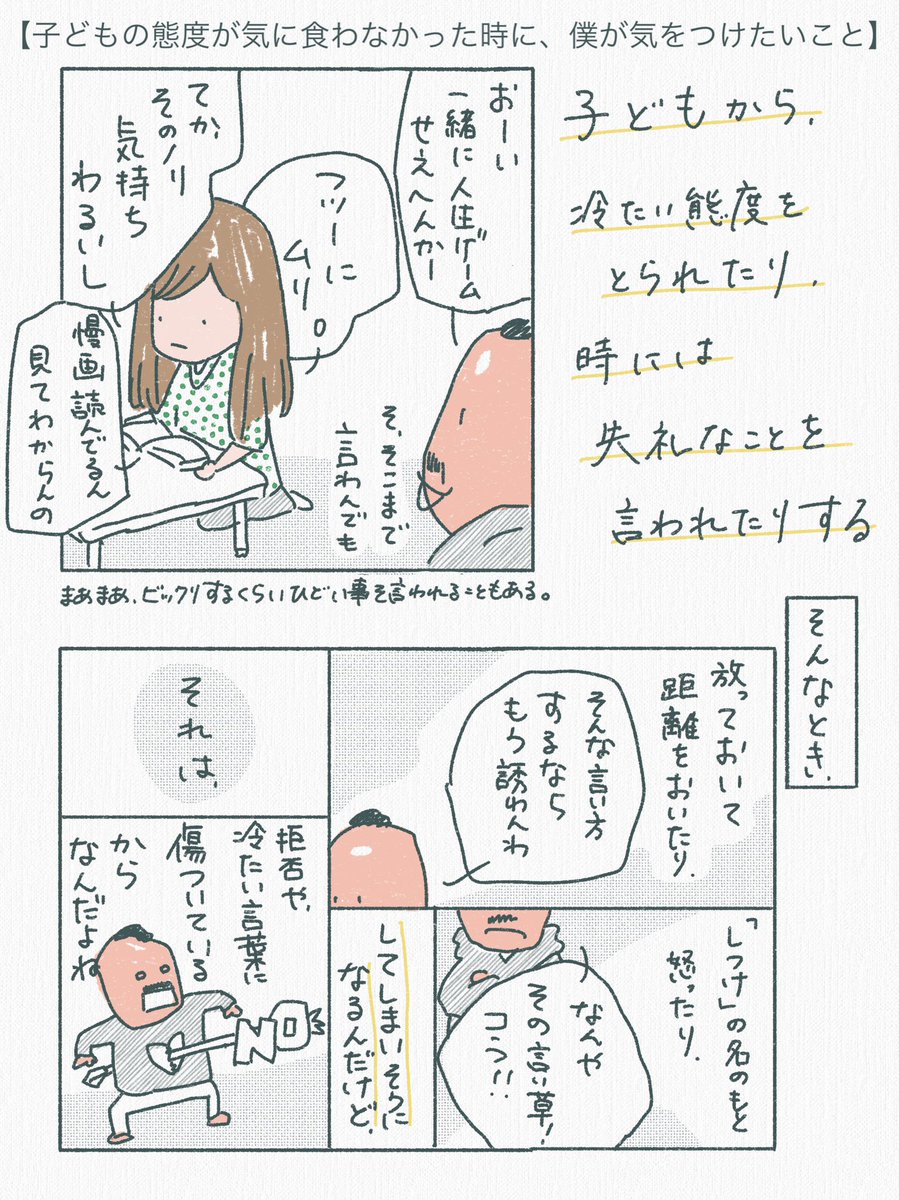 【子どもの態度が気に食わなかった時に、僕が気をつけたいこと】
子どもから、
冷たい態度を
とられたり、
時には
失礼なことを
言われたりする
おーい
一緒に人生ゲーム
せえへんかー
フツーに
ムリ。
てか、
そのノリ
気持ち
わるいし
漫画読んでるん
見てわからんの
そ、そこまで
言わんでも
まあまあ、ビックリするくらいひどい事を言われることもある。
そんなとき、
放っておいて
距離をおいたり、
そんな言い方
するなら
もう誘わんわ
「しつけ」の名のもと
怒ったり、
なんや
その言い草!
コラ!!
してしまいそうに
なるんだけど、
それは、
拒否や、
冷たい言葉に
傷ついている
から
なんだよね
NO